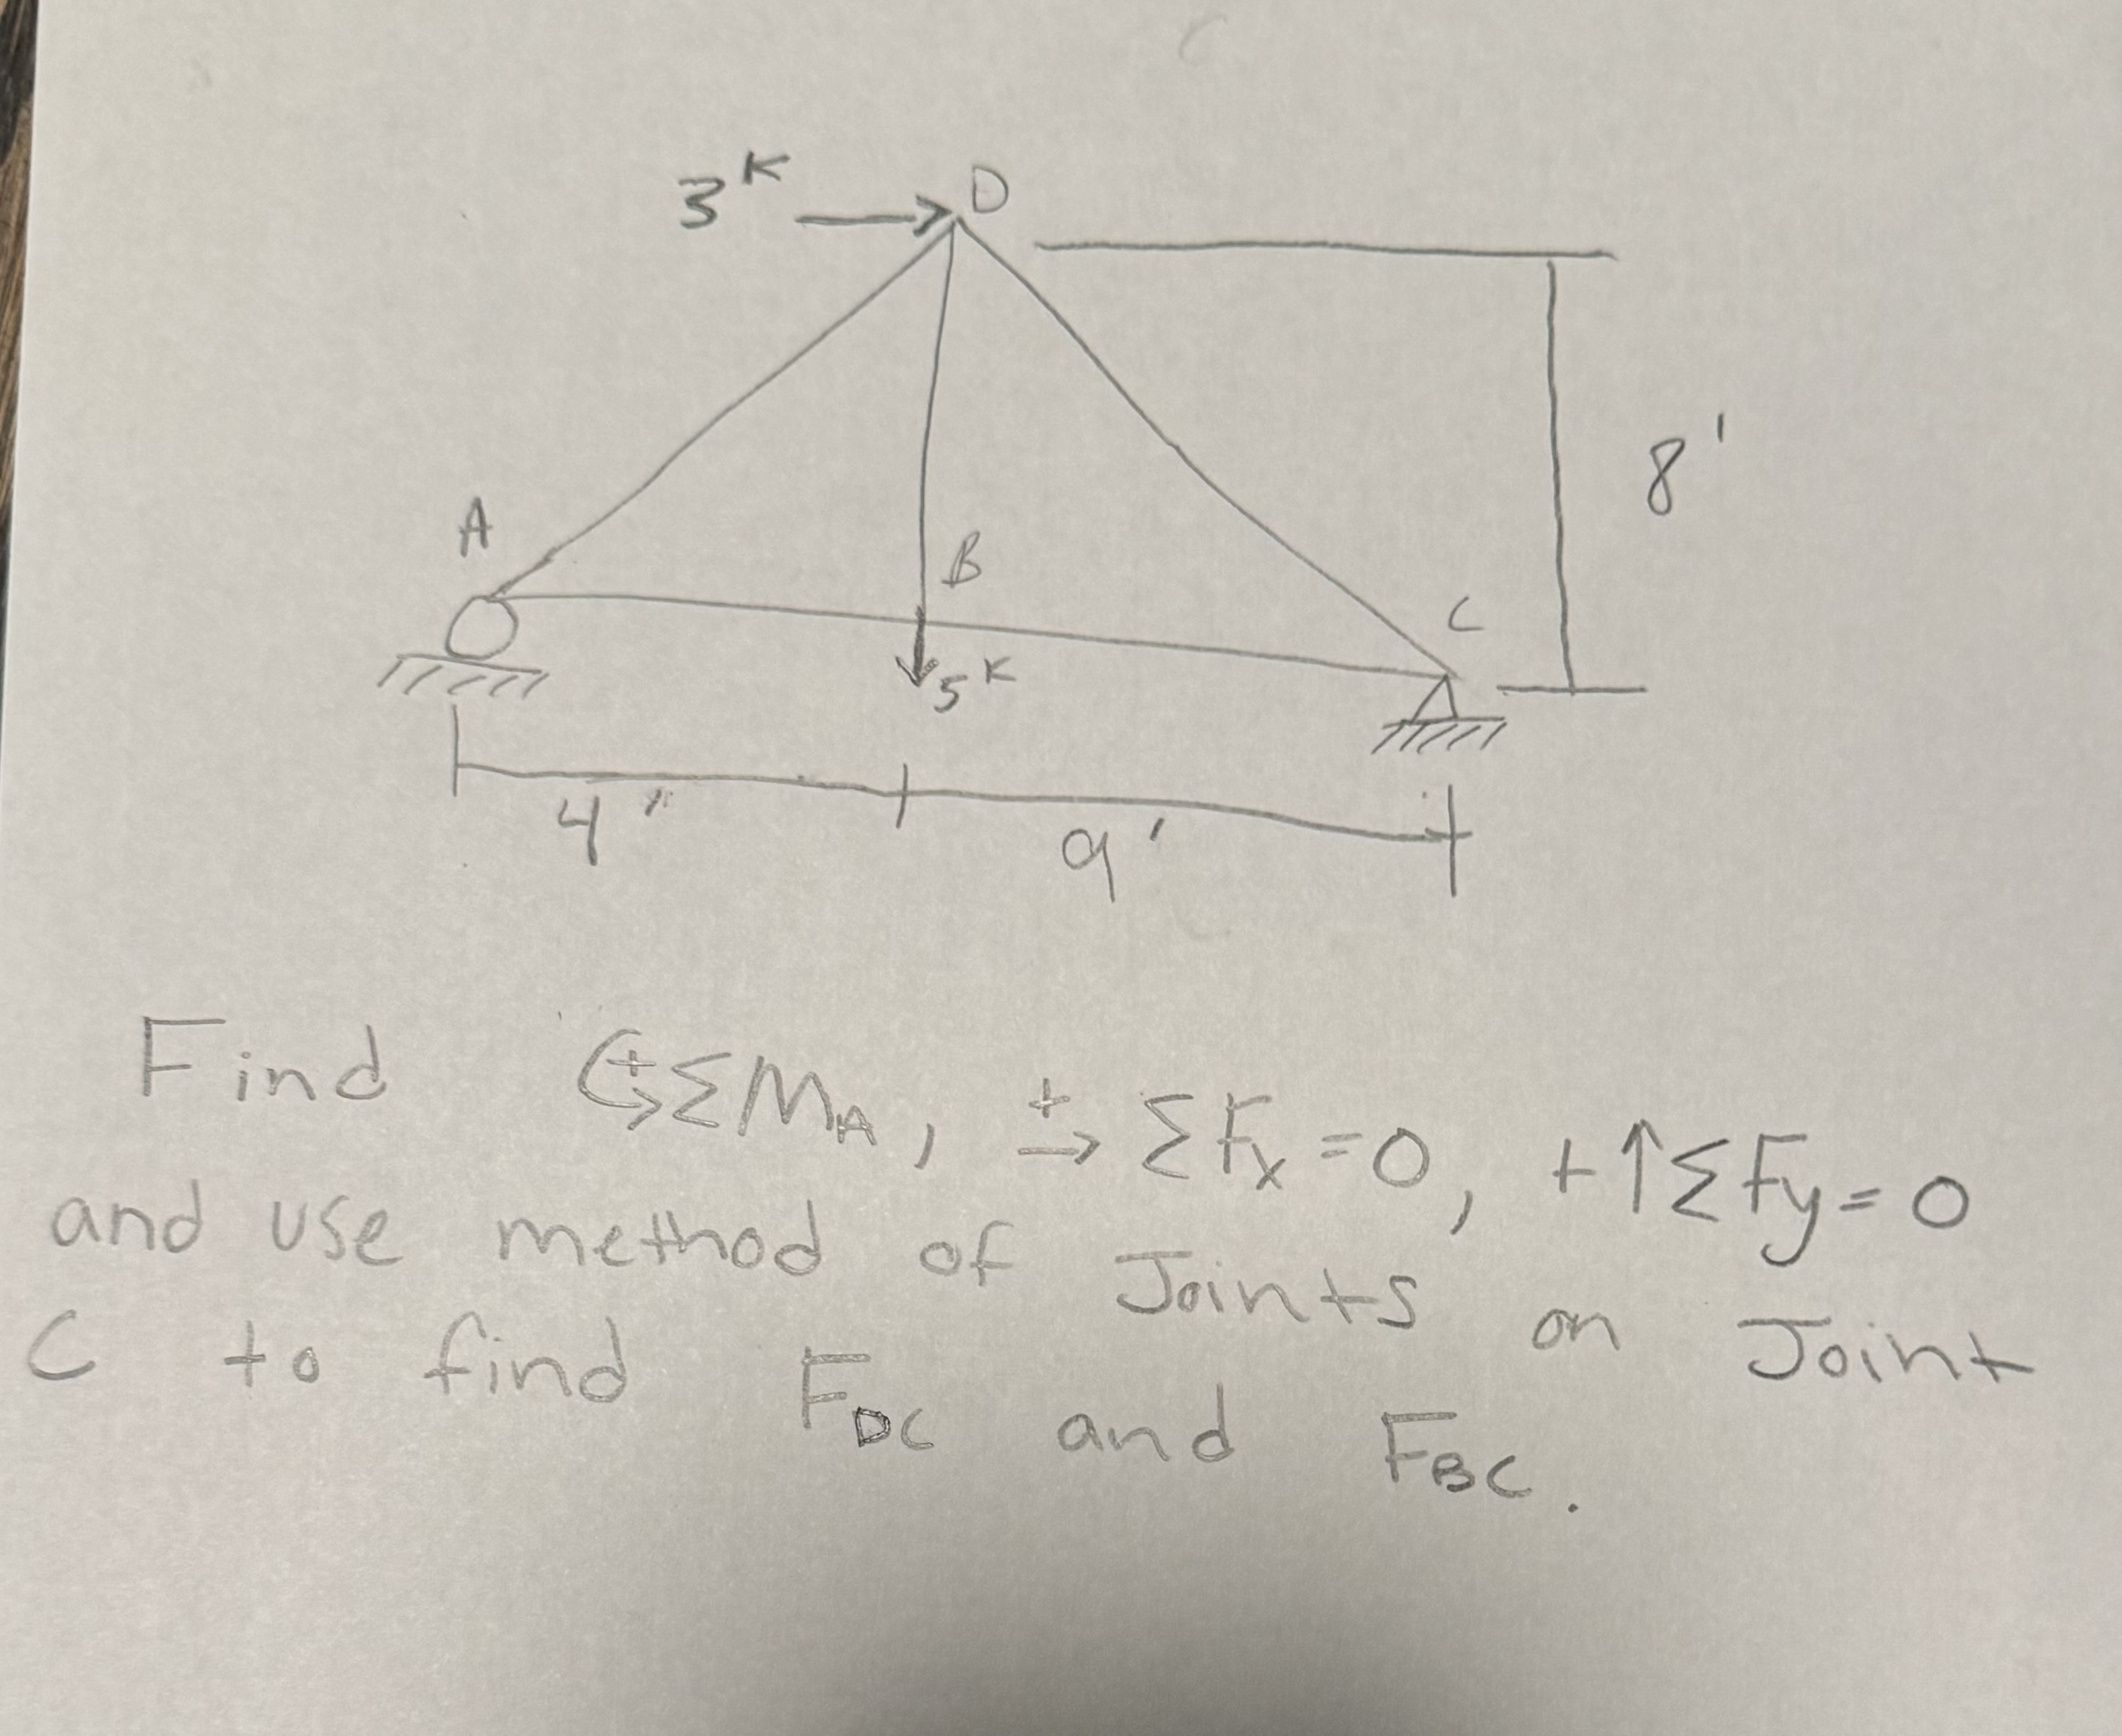 3ᴷ D
8'
A
B
C
5ᴷ
4' 9'
Find ↺+ΣM_A, +→ ΣF_x=0, +↑ΣF_y=0
and use method of Joints on Joint
C to find F_DC and F_BC.